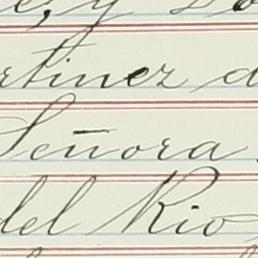 e, y
rtinez d
Señora
del Rio